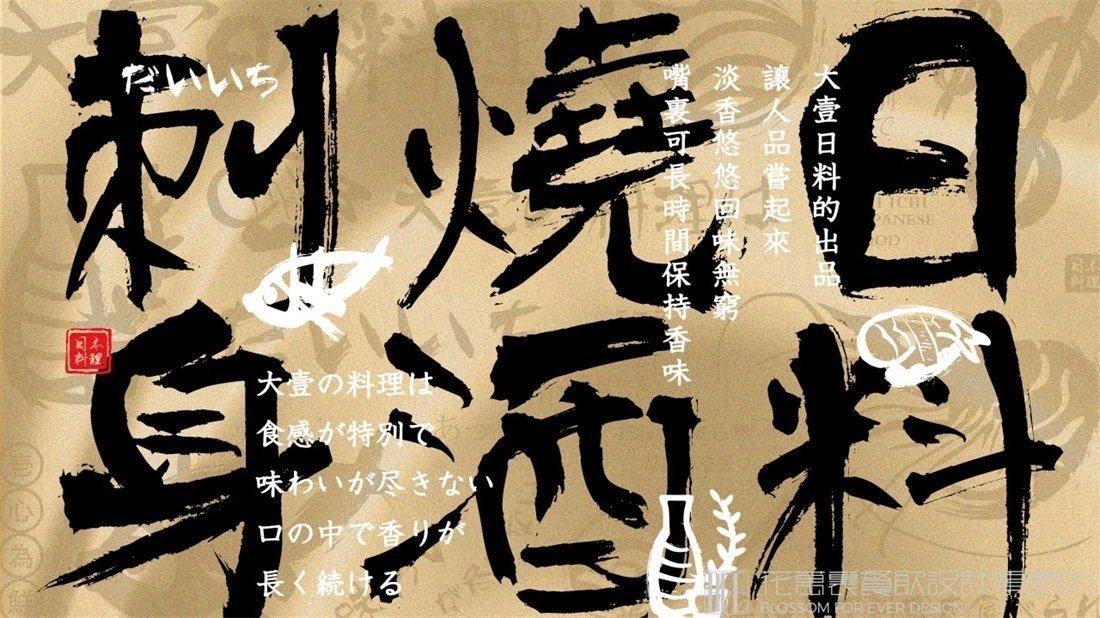 日料
燒酒
刺身
だいいち
大壹日料的出品
讓人品嘗起來
淡香悠悠回味無窮
嘴裏可長時間保持香味
日本
料理
大壹の料理は
食感が特別で
味わいが尽きない
口の中で香りが
長く続ける
壹心為鮮
花萬裏餐飲設計
BLOSSOM FOR EVER DESIGN